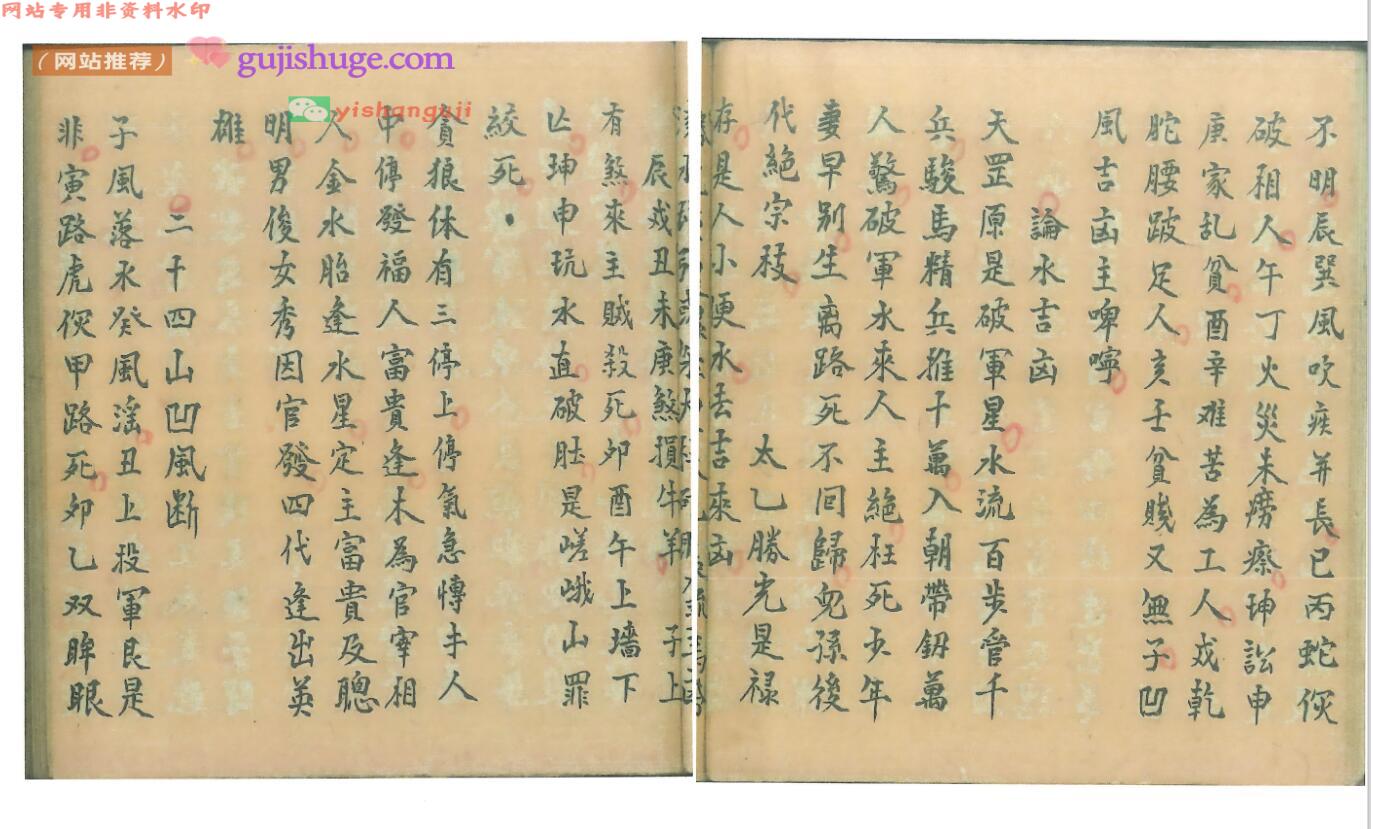 网站专用非资料水印
(网站推荐)
gujishuge.com
yishanguji
不明辰巽風吹疾并長巳丙蛇傷
破相人午丁火災未癆瘵坤訟申
庚家乱貧酉辛难苦為工人戍乾
駝腰跛足人亥壬貧賤又無子凹
風吉凶主啤嚀
論水吉凶
天罡原是破軍星水流百步管千
兵駿馬精兵推十萬入朝帶釰萬
人驚破軍水來人主絶枉死少年
妻早别生离路死不回歸兒孫後
代絶宗枝
太乙勝光是禄
存是人小便水去吉來凶
辰戍丑未庚煞損牛羊子上
有煞來主賊殺死夘酉午上墙下
亡坤申玩水直破肚是嵯峨山罪
絞死
貪狼体有三停上停氣急慱士人
中停發福人富貴逢木為官宰相
入金水胎逢水星定主富貴及聰
明男俊女秀因官發四代逢出英
雄
二十四山凹風断
子風落水癸風滛丑上投軍艮是
非寅路虎傷甲路死夘乙双眸眼